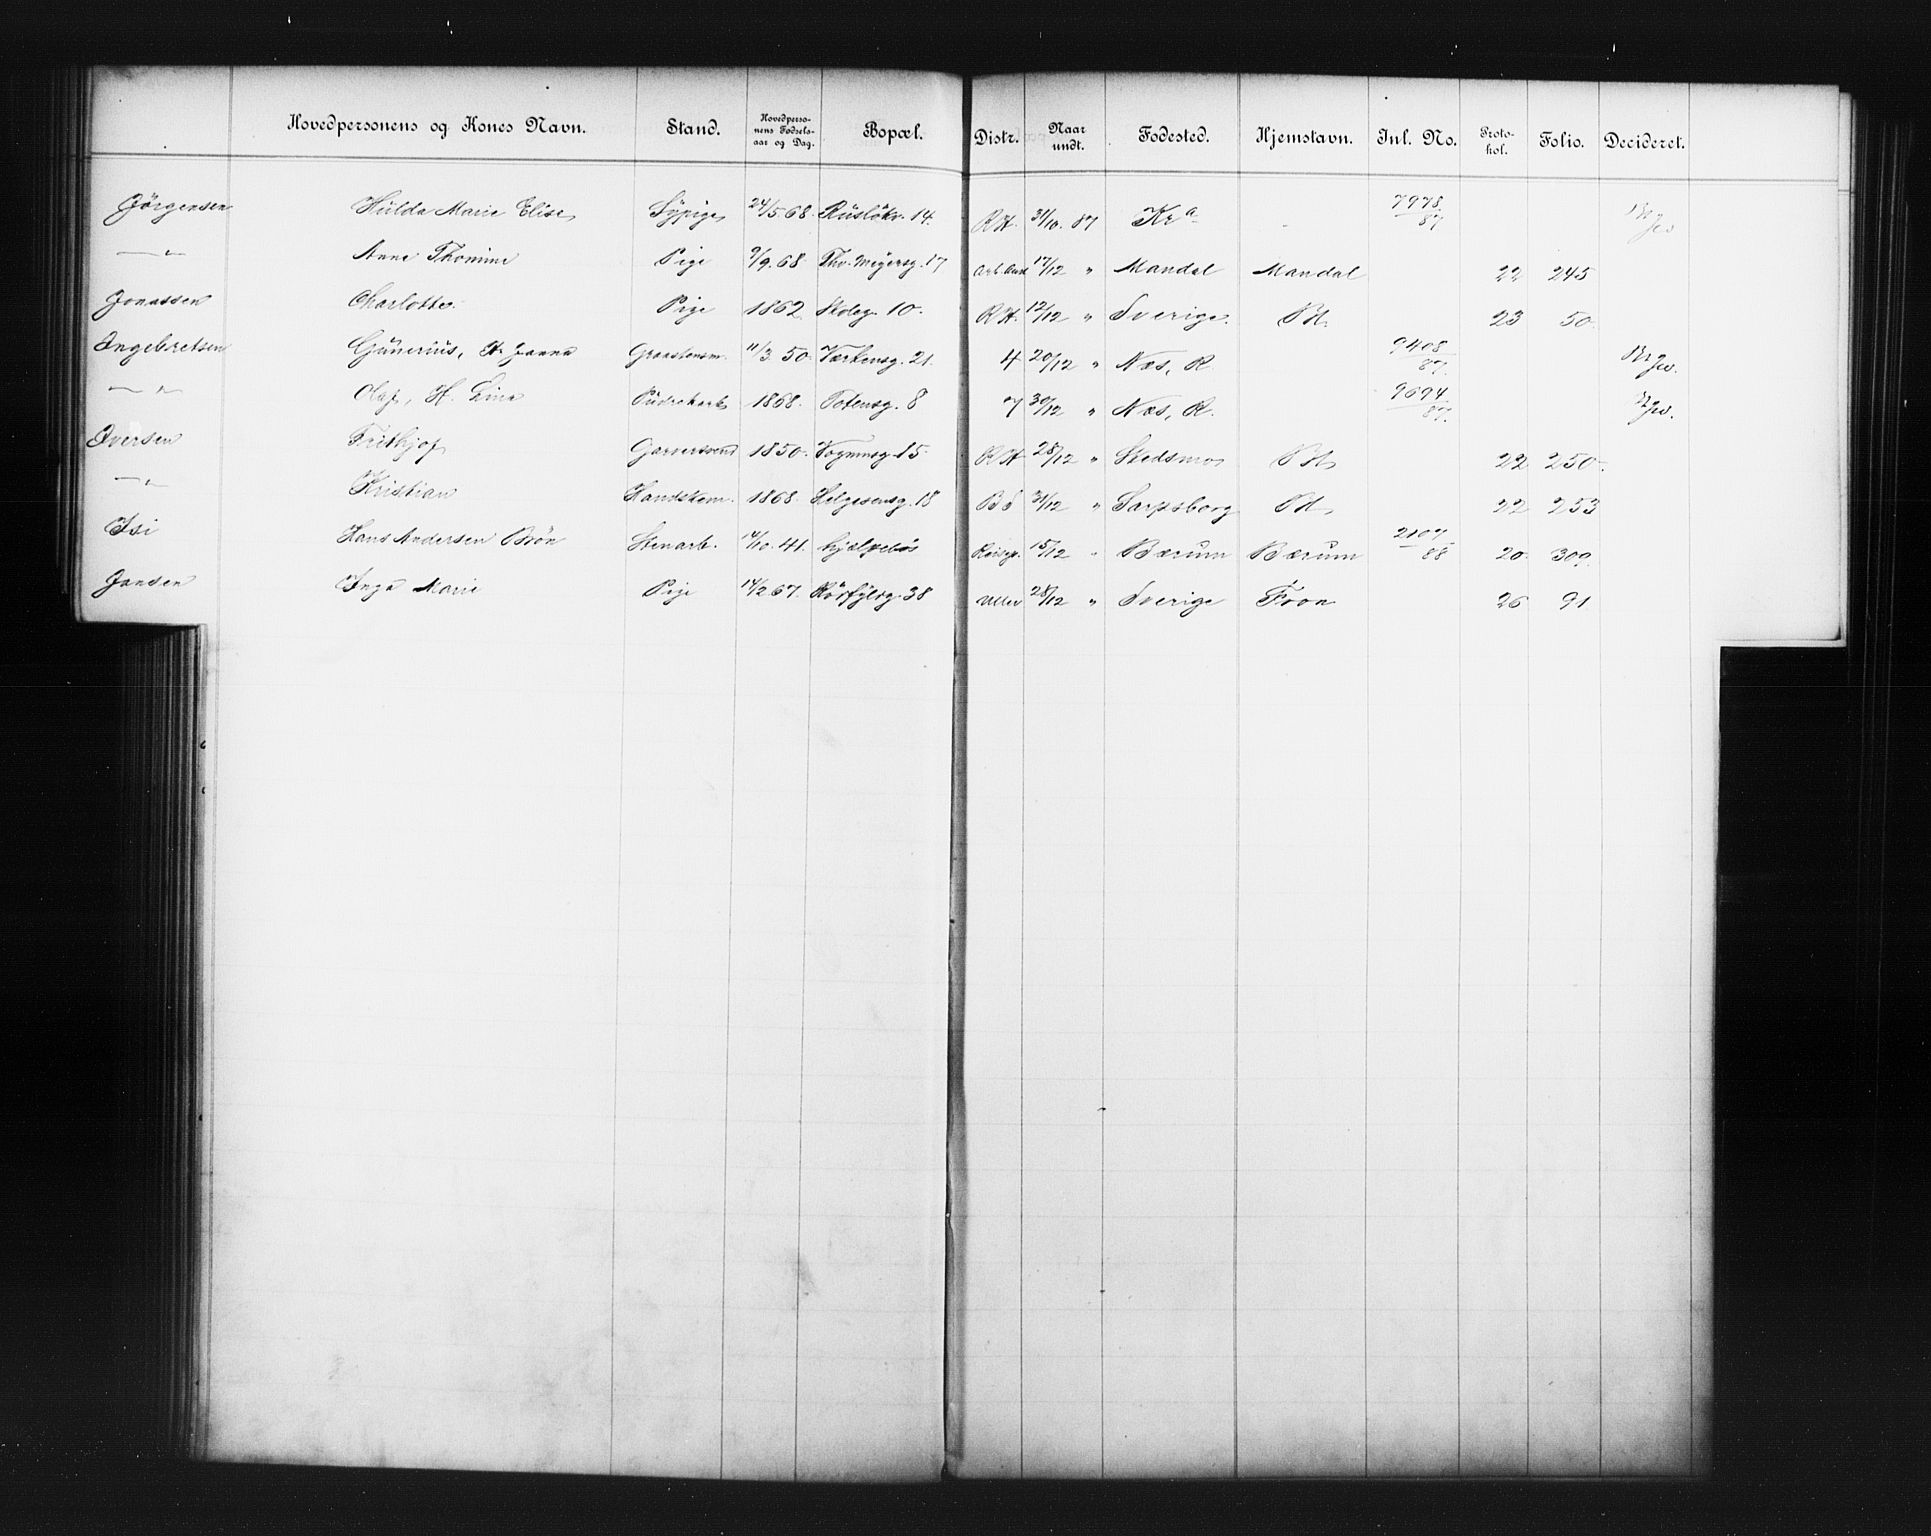 Hovedpersonens og Kones Navn. Stand. Hovedpersonens Fødselsaar og Dag. Bopæl. Distr. Naar undt. Fødested. Hjemstavn. Inl. No. Protokol. Folio. Decideret.
Jørgensen Hulda Marie Elise Sypige 24/5 68. Rusløkv. 14. R.H. 31/10. 87 Kra 7978/87
—"— Anne Thomine Pige 9/9. 68. Thv. Meyersg. 17 17/12 " Mandal Mandal 22 245
Jonassen Charlotte. Pige 1862 Skoleg. 10. R.H. 12/12 " Sverige. 23 50.
Ingebretsen Gunerius, H. Janna 11/3 50. Værkensg. 21. 4 20/12 " Næs, R. 9408/87.
—"— Olaf, H. Lina 1868. Totensg. 8 7 30/12 " Næs, R. 9694/87.
Iversen Frithjof Garversvend 1850. Vognmsg. 15. R.H 28/12 " Skedsmo 22 250.
—"— Kristian Handskem. 1868. Helgesensg. 18 31/12 " Sarpsborg 22 253
Isi Hans Andersen Brøn Stenarb. 14/10. 41. hjælpeløs 15/12 " Bærum Bærum 2107/88 20. 309.
Jansen Inga Marie Pige 14/2 67. 38 28/12 " Sverige 26 91